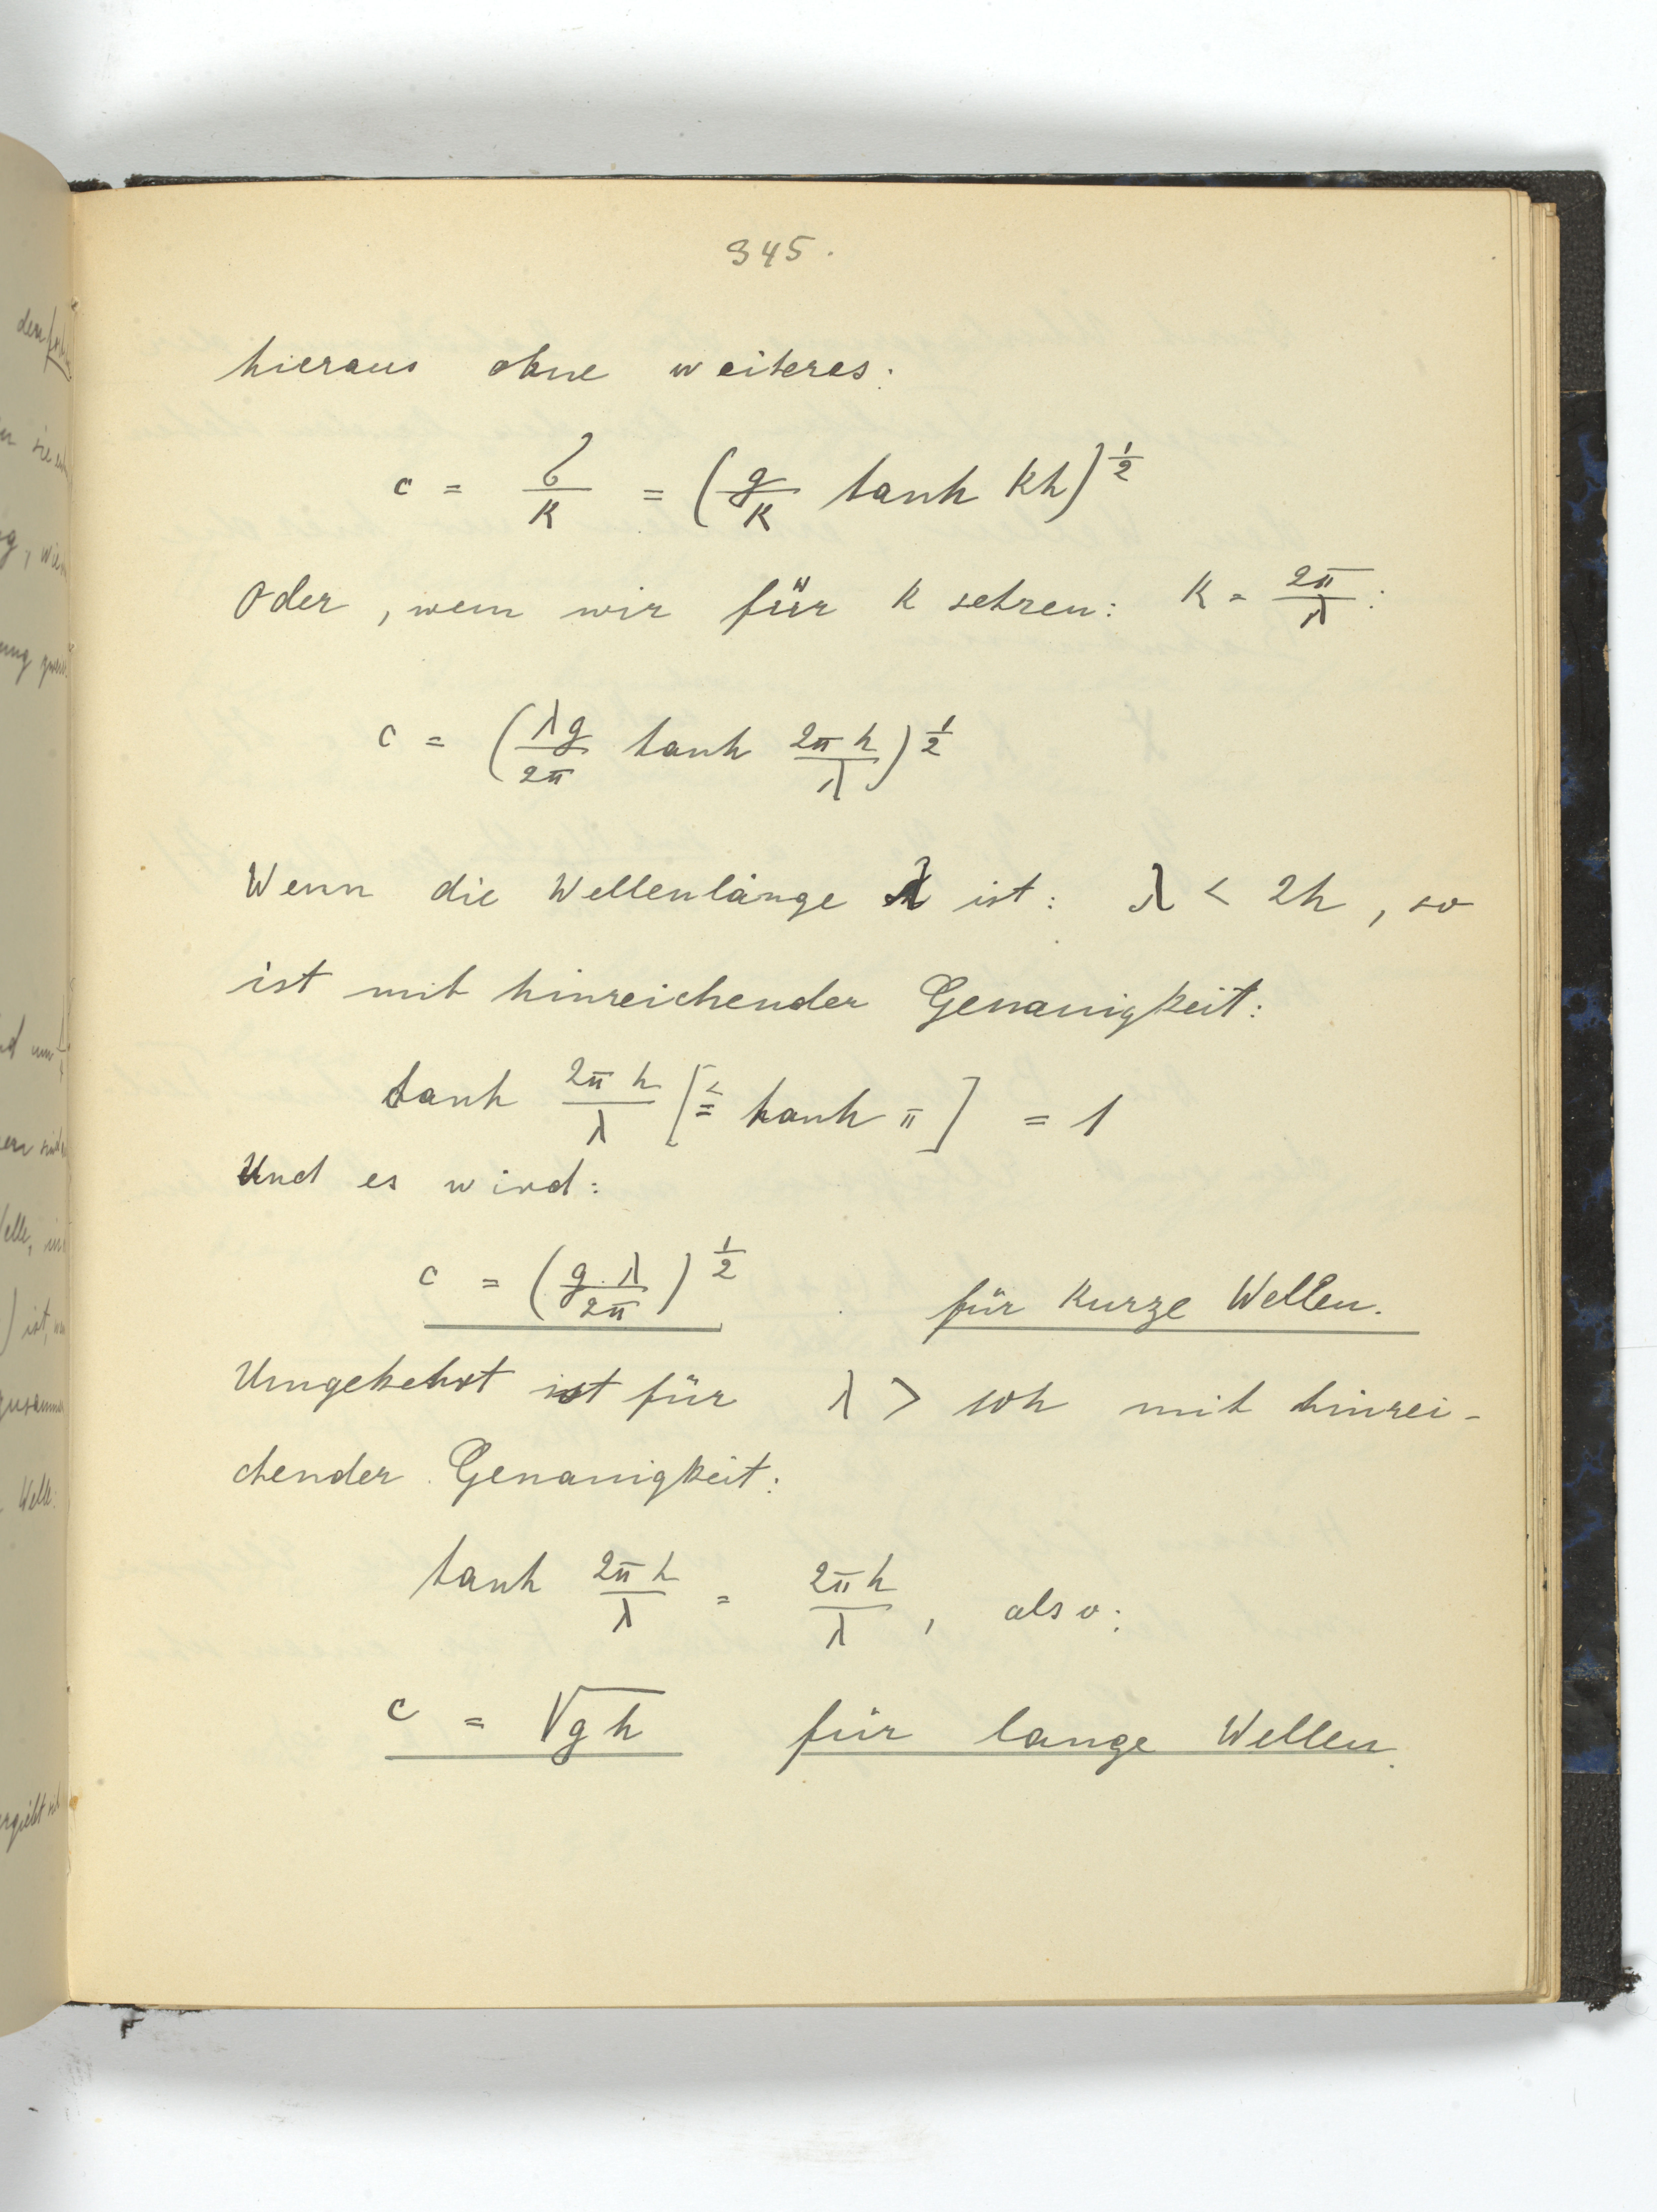 345.
hieraus ohne weiteres:
c = σ/k = (g/k tanh kh)^1/2
Oder, wenn wir für k setzen: k = 2π/λ:
c = (λg/2π tanh 2πh/λ)^1/2
Wenn die Wellenlänge λ ist: λ < 2h, so
ist mit hinreichender Genauigkeit:
tanh 2πh/λ [≦ tanh π] = 1
Und es wird:
c = (g·λ/2π)^1/2 für kurze Wellen.
Umgekehrt ist für λ > 10h mit hinrei-
chender Genauigkeit:
tanh 2πh/λ = 2πh/λ, also:
c = √gh für lange Wellen.